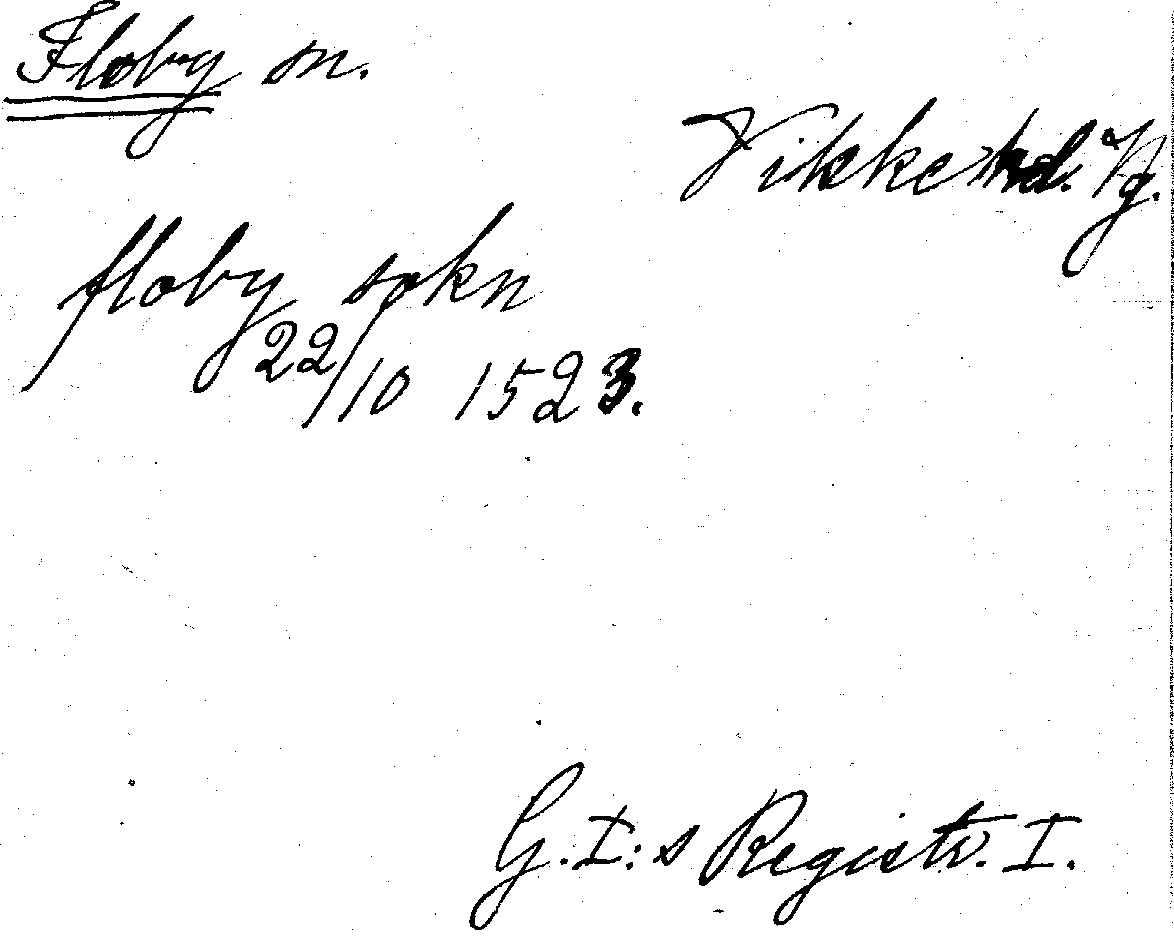 Floby sn.
Vilske hd. Vg.
floby sokn
22/10 1523.
G.I:s Registr. I.